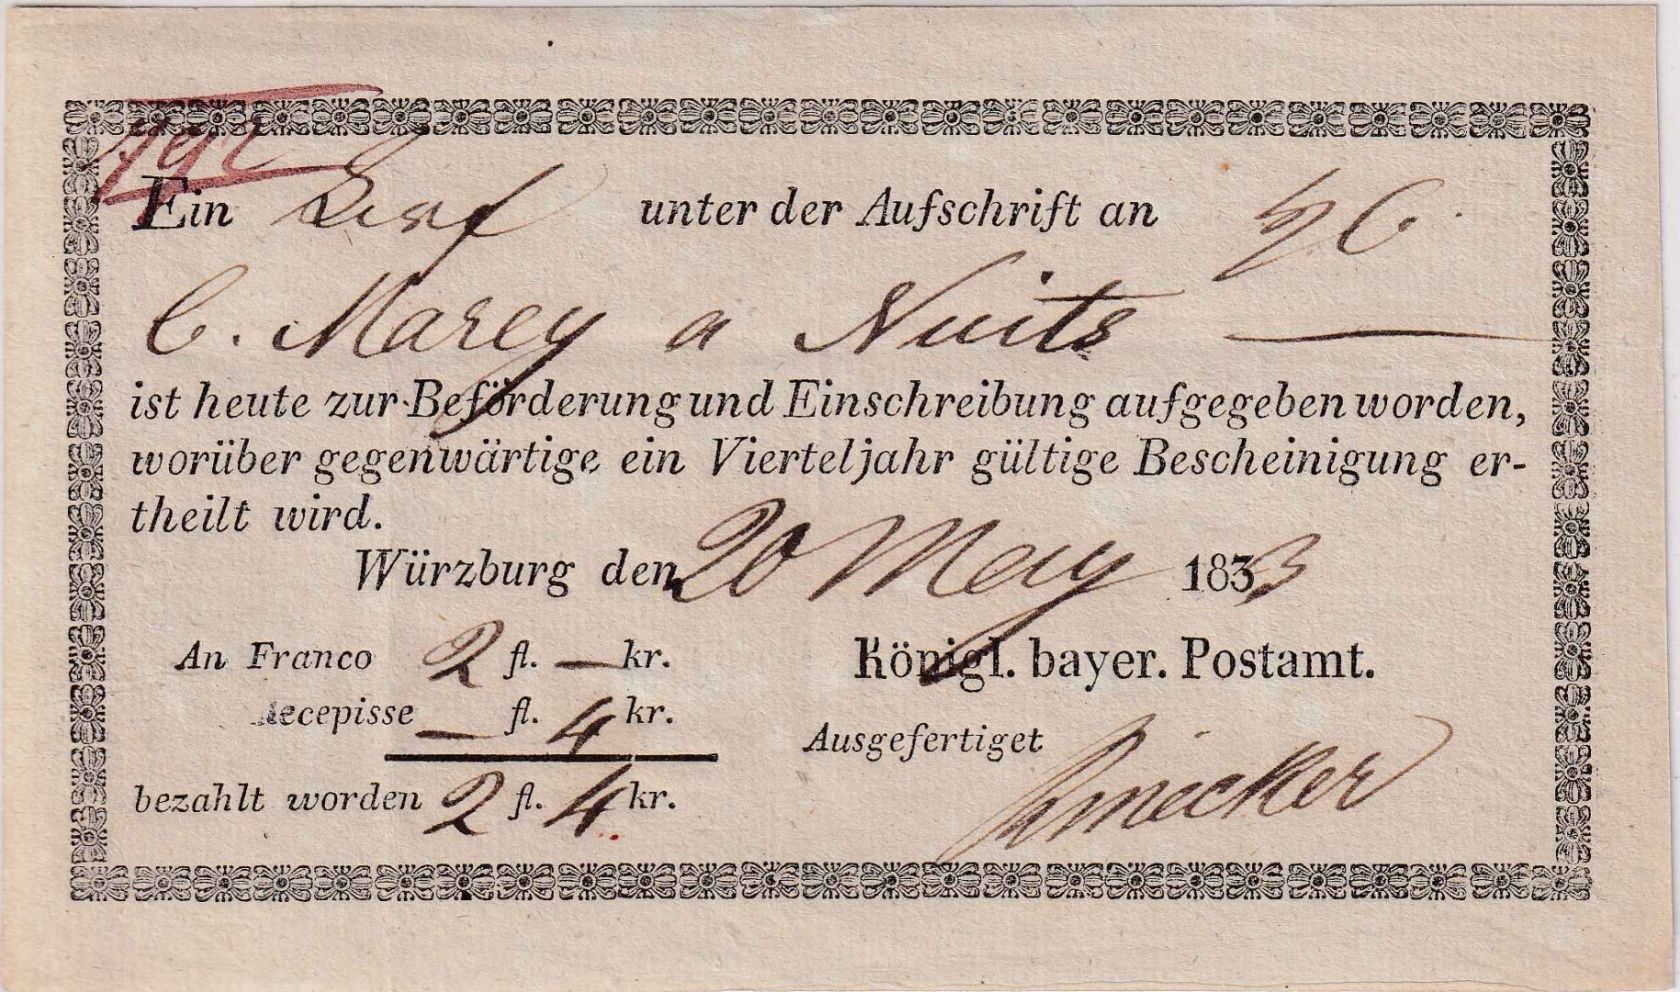 Ein Brief unter der Aufschrift an
C. Marey a Nuits
ist heute zur Beförderung und Einschreibung aufgegeben worden,
worüber gegenwärtige ein Vierteljahr gültige Bescheinigung er-
theilt wird.
Würzburg den 20 May 1833
An Franco 2 fl. — kr.
Königl. bayer. Postamt.
Recepisse — fl. 4 kr.
Ausgefertiget
bezahlt worden 2 fl. 4 kr.